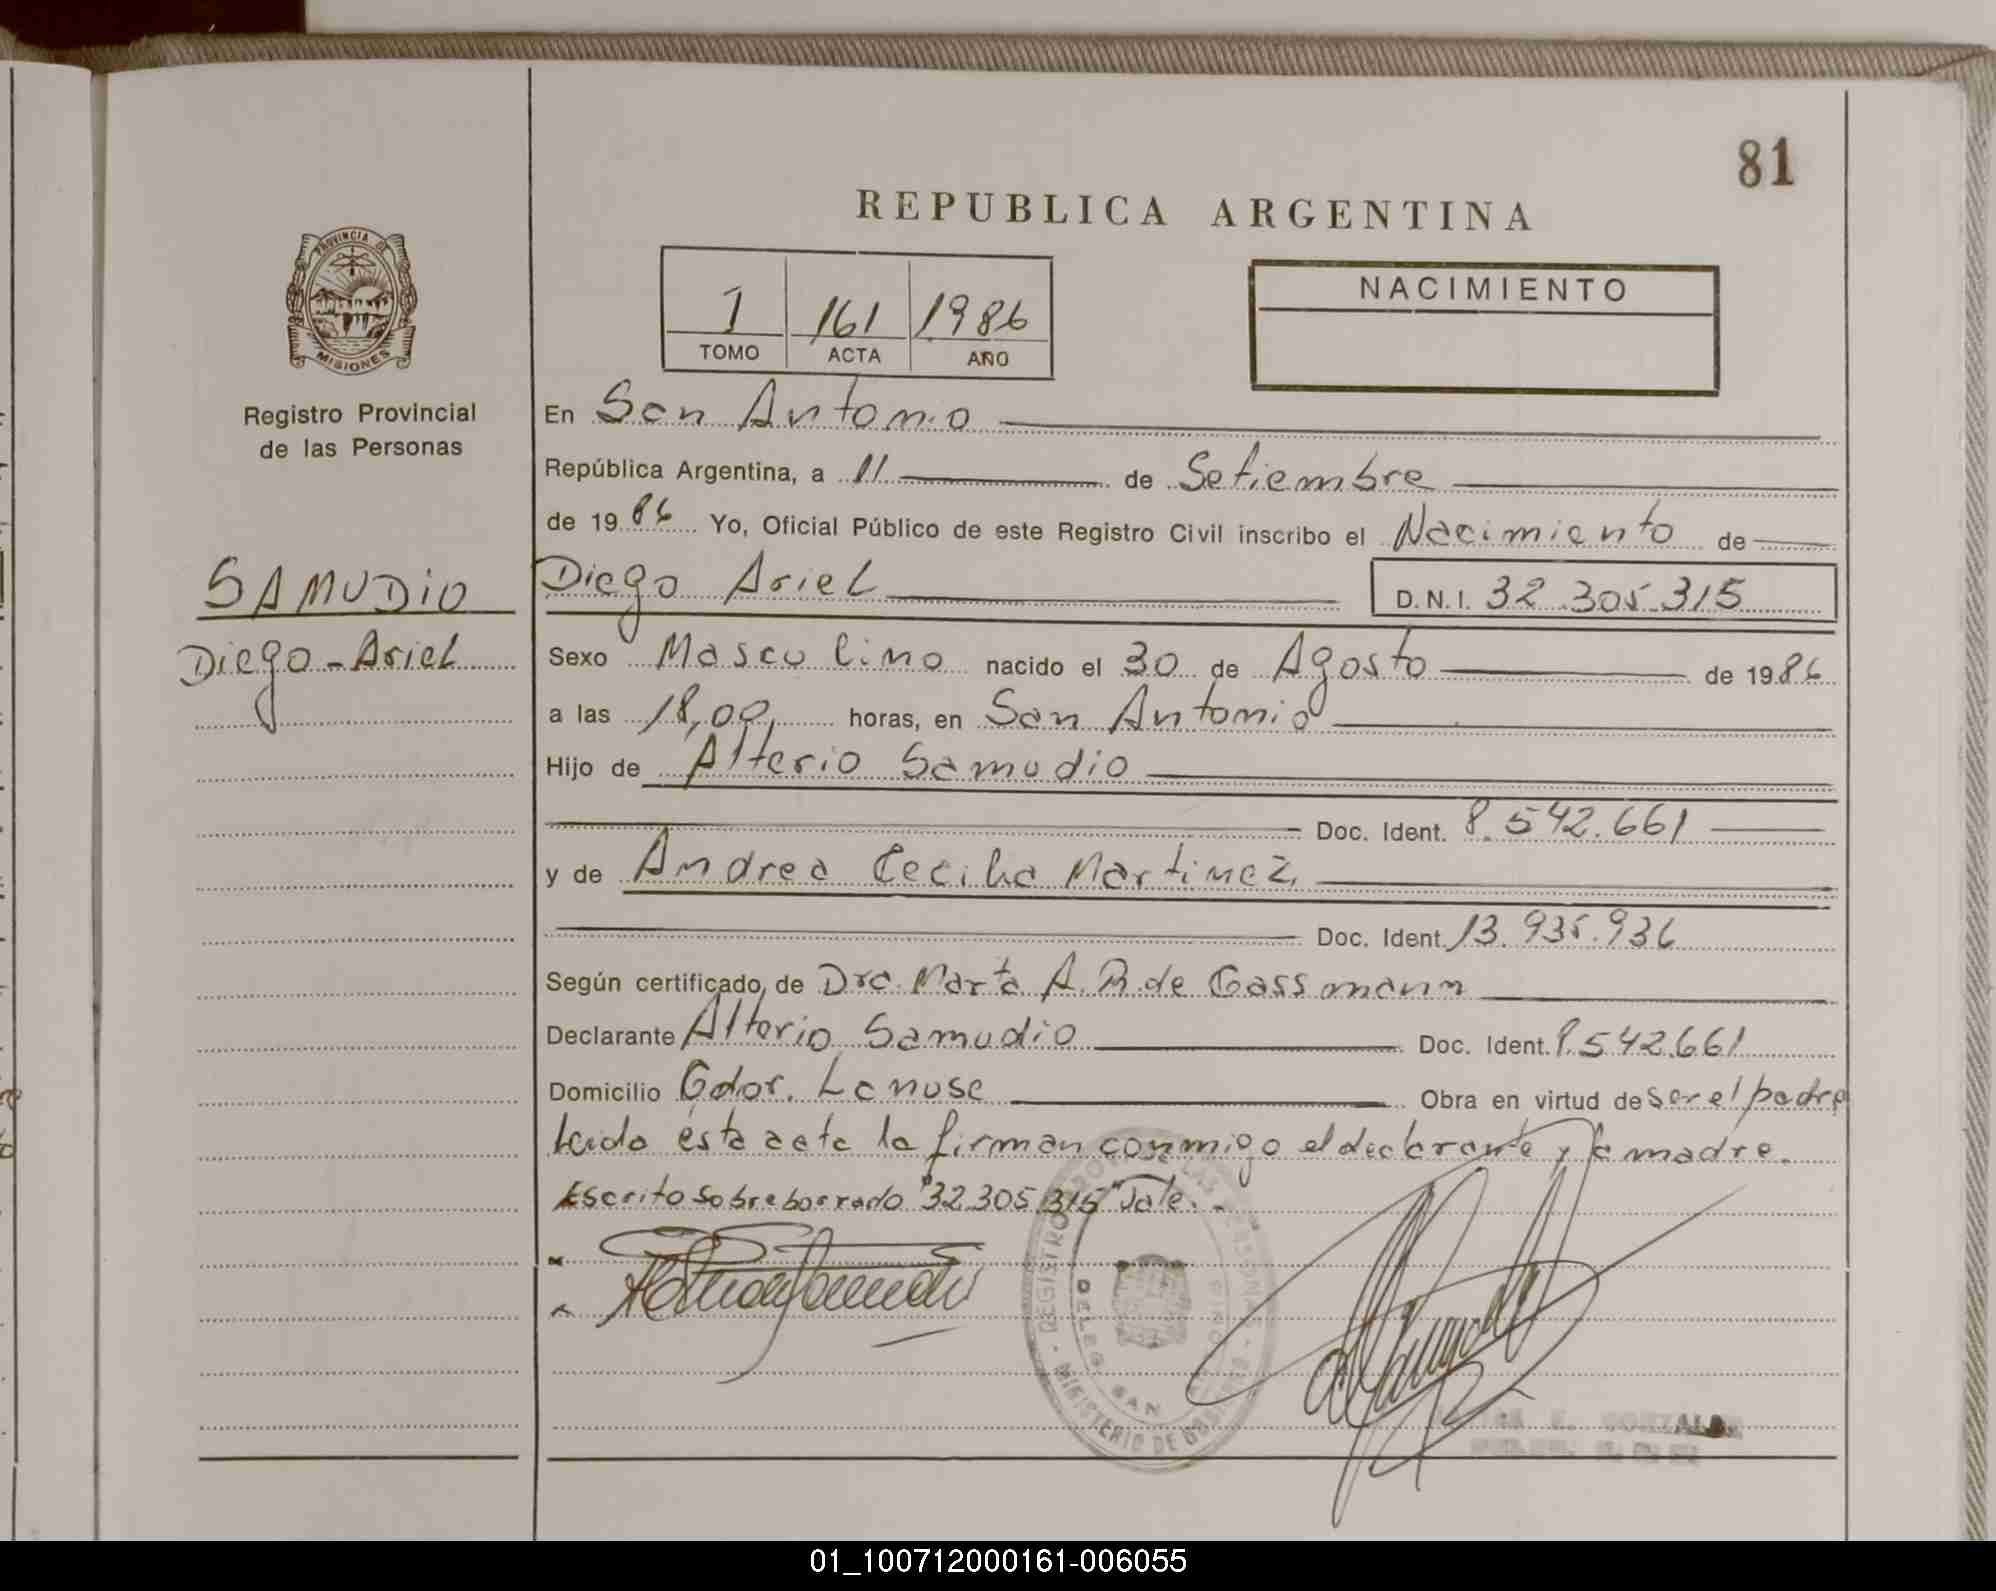 81
REPUBLICA ARGENTINA
PROVINCIA DE
MISIONES
Registro Provincial
de las Personas
1 161 1986
TOMO ACTA AÑO
NACIMIENTO
En San Antonio
República Argentina, a 11 de Setiembre
de 19 86 Yo, Oficial Público de este Registro Civil inscribo el Nacimiento de
SAMUDIO
Diego Ariel D.N.I. 32.305.315
Diego-Ariel
Sexo Masculino nacido el 30 de Agosto de 1986
a las 18,00, horas, en San Antonio
Hijo de Alterio Samudio
Doc. Ident. 8.542.661
y de Andrea Cecilia Martinez,
Doc. Ident. 13.935.936
Según certificado, de Dra. Marta A. R. de Gassmann
Declarante Alterio Samudio Doc. Ident. 8.542.661
Domicilio Gdor. Lanuse Obra en virtud de ser el padre
Leida ésta acta la firman conmigo el declarante y la madre.
Escrito sobre borrado "32.305.315" Vale.-
REGISTRO LAS PERSONAS
DELEG. SAN
MINISTERIO DE GOB
GONZALEZ
01_100712000161-006055